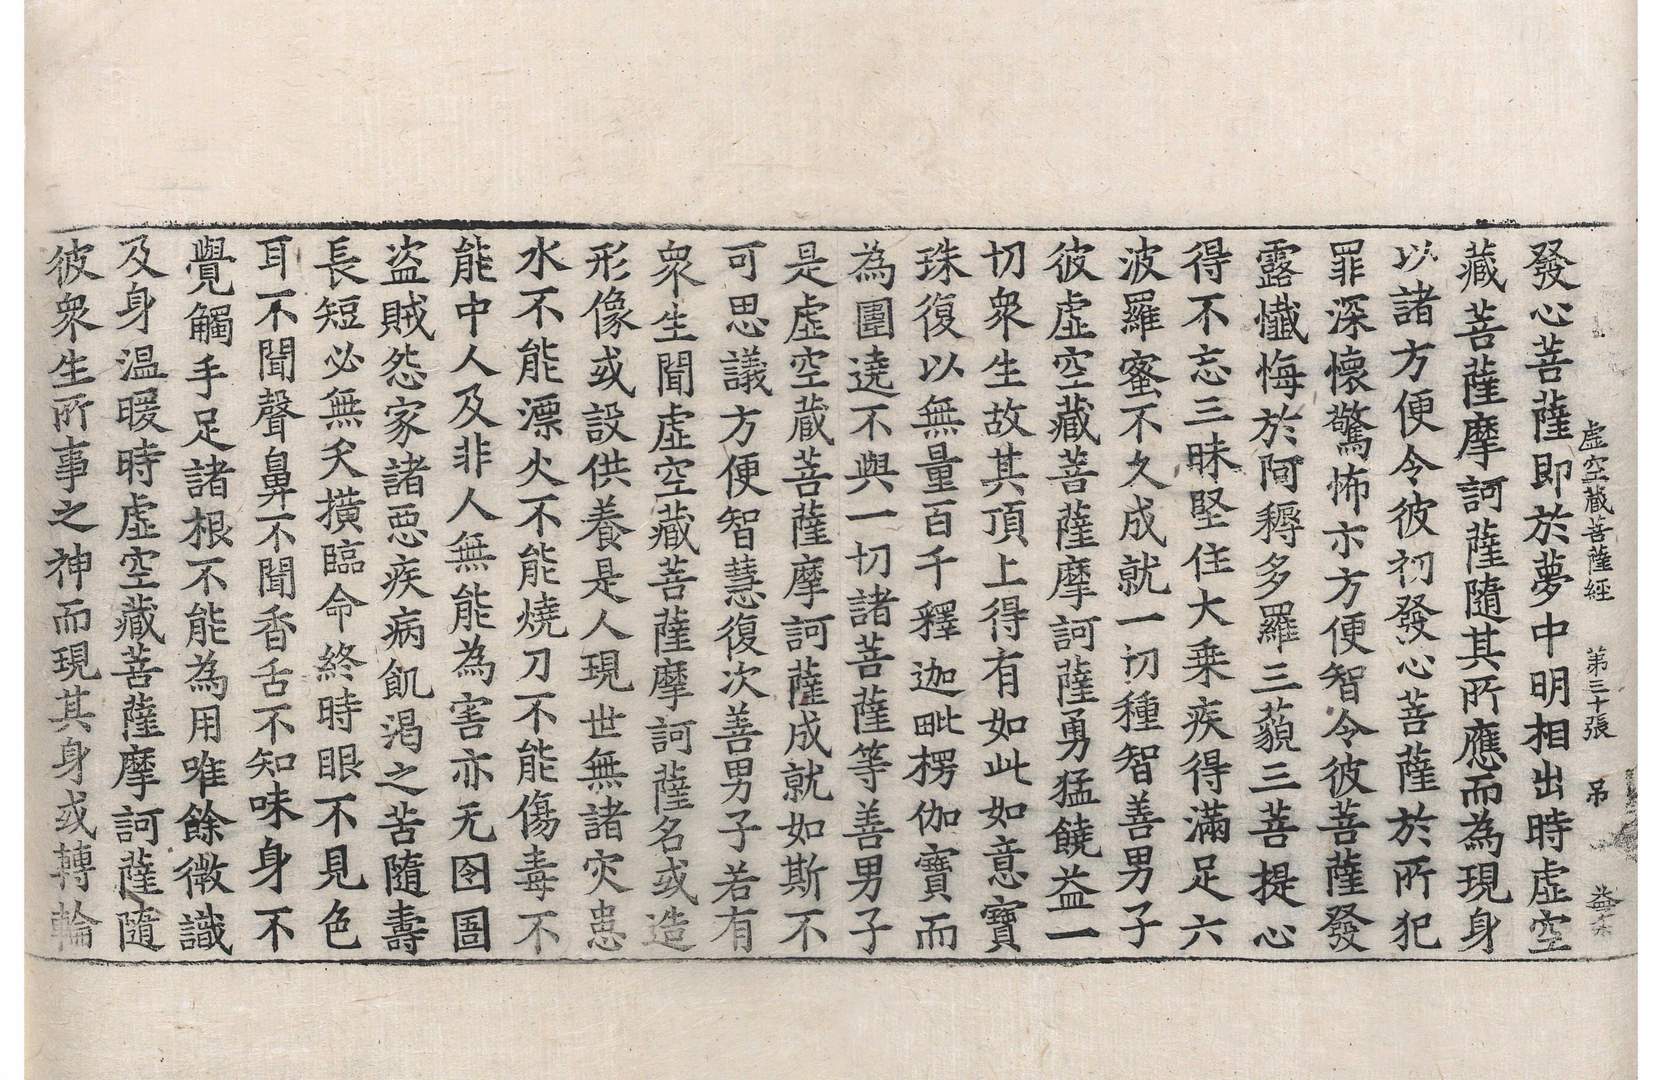 虛空藏菩薩經 第三十張 弔
發心菩薩即於夢中明相出時虛空
藏菩薩摩訶薩隨其所應而為現身
以諸方便令彼初發心菩薩於所犯
罪深懷驚怖亦方便智令彼菩薩發
露懺悔於阿耨多羅三藐三菩提心
得不忘三昧堅住大乘疾得滿足六
波羅蜜不久成就一切種智善男子
彼虛空藏菩薩摩訶薩勇猛饒益一
切衆生故其頂上得有如此如意寶
珠復以無量百千釋迦毗楞伽寶而
為圍遶不與一切諸菩薩等善男子
是虛空藏菩薩摩訶薩成就如斯不
可思議方便智慧復次善男子若有
衆生聞虛空藏菩薩摩訶薩名或造
形像或設供養是人現世無諸灾患
水不能漂火不能燒刀不能傷毒不
能中人及非人無能為害亦无囹圄
盜賊怨家諸惡疾病飢渴之苦隨壽
長短必無夭橫臨命終時眼不見色
耳不聞聲鼻不聞香舌不知味身不
覺觸手足諸根不能為用唯餘微識
及身温暖時虛空藏菩薩摩訶薩隨
彼衆生所事之神而現其身或轉輪